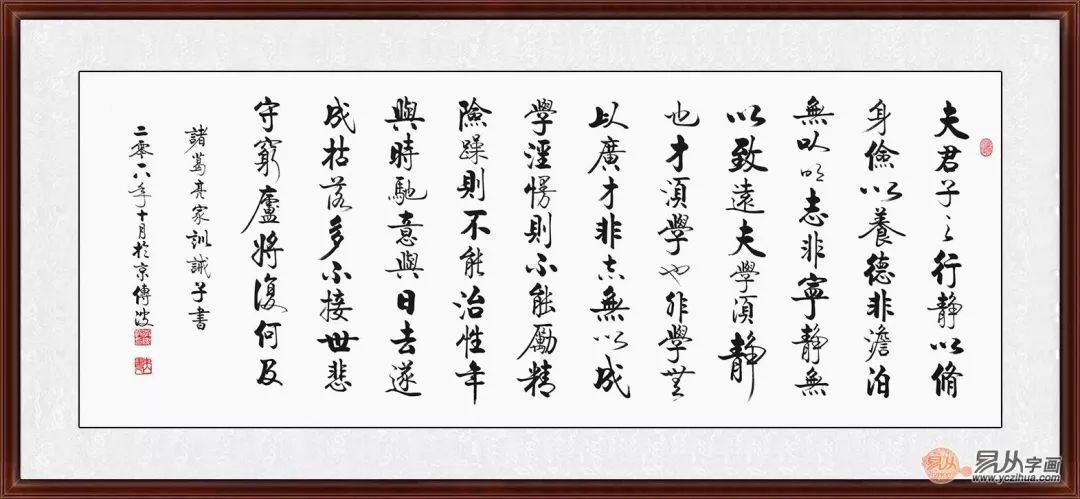 夫君子之行靜以脩
身儉以養德非澹泊
無以明志非寧靜無
以致遠夫學須靜
也才須學也非學無
以廣才非志無以成
學淫慢則不能勵精
險躁則不能治性年
與時馳意與日去遂
成枯落多不接世悲
守窮廬將復何及
諸葛亮家訓誡子書
二零一八年十月於京傳波
易从
易从字画
www.yczihua.com